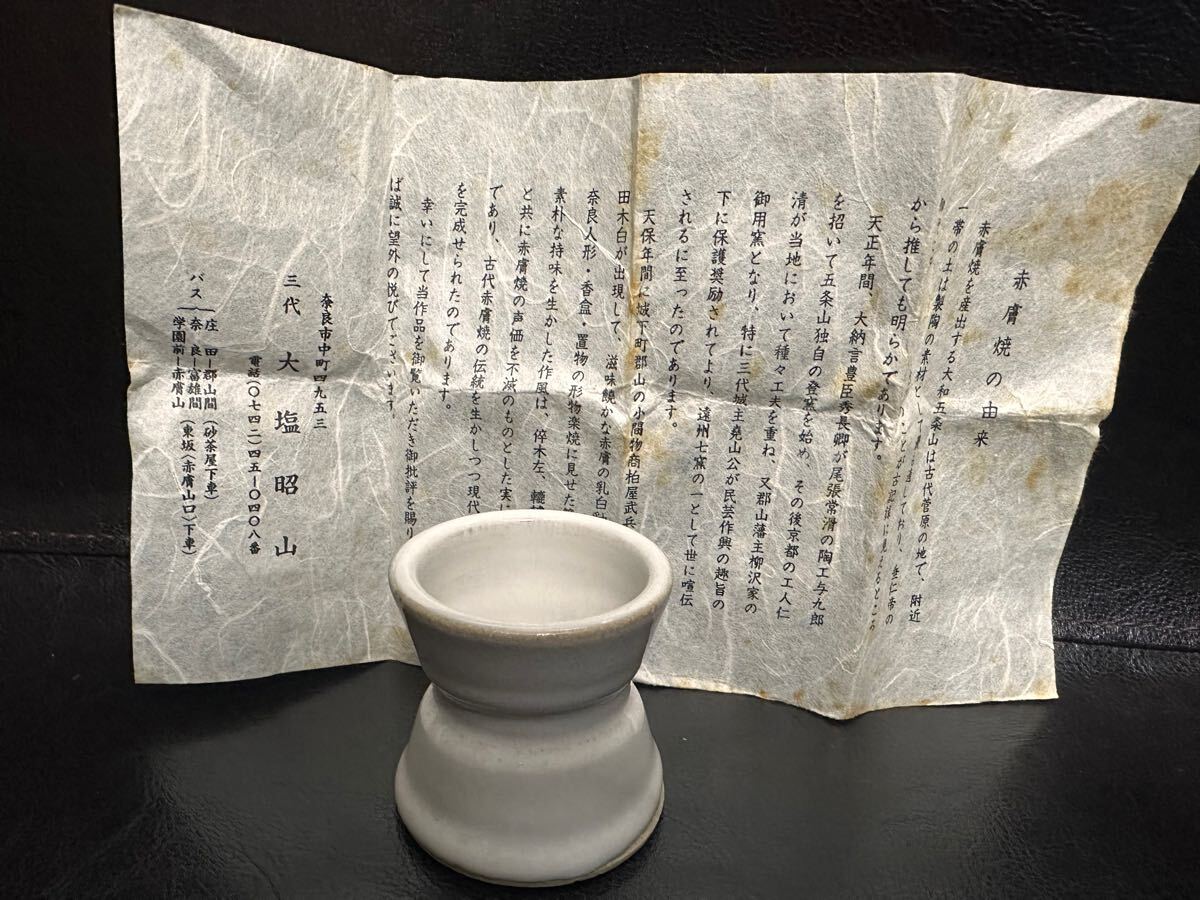 赤膚焼の由来
赤膚焼を産出する大和五条山は古代菅原の地で、附近
一帯の土は製陶の素材として
のことが古記録に見えるところ
から推しても明らかであります。
天正年間、大納言豊臣秀長卿が尾張常滑の陶工与九郎
を招いて五条山独自の登窯を始め、その後京都の工人仁
清が当地において種々工夫を重ね、又郡山藩主柳沢家の
御用窯となり、特に三代城主堯山公が民芸作興の趣旨の
下に保護奨励されてより、遠州七窯の一として世に喧伝
されるに至ったのであります。
天保年間に城下町郡山の小間物商柏屋武兵
田木白が出現して、滋味饒かな赤膚の乳白釉
奈良人形・香盒・置物の形物楽焼に見せた
素朴な持味を生かした作風は、倅木左、轆轤
と共に赤膚焼の声価を不滅のものとした実に
であり、古代赤膚焼の伝統を生かしつつ現代
を完成せられたのであります。
幸いにして当作品を御覧いただき御批評を賜り
ば誠に望外の悦びでございます。
奈良市中町四九五三
三代 大塩昭山
電話(〇七四二)四五ー〇四〇八番
バス 庄田ー郡山間(砂茶屋下車)
奈良ー富雄間
学園前ー赤膚山(東坂(赤膚山口)下車)